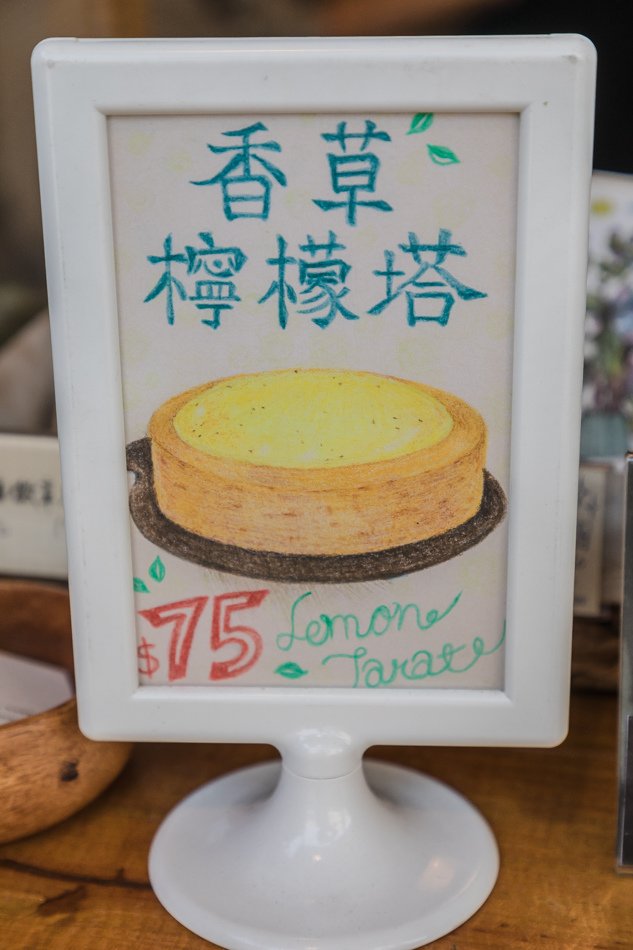 香草
檸檬塔
$75
Lemon
Tarate